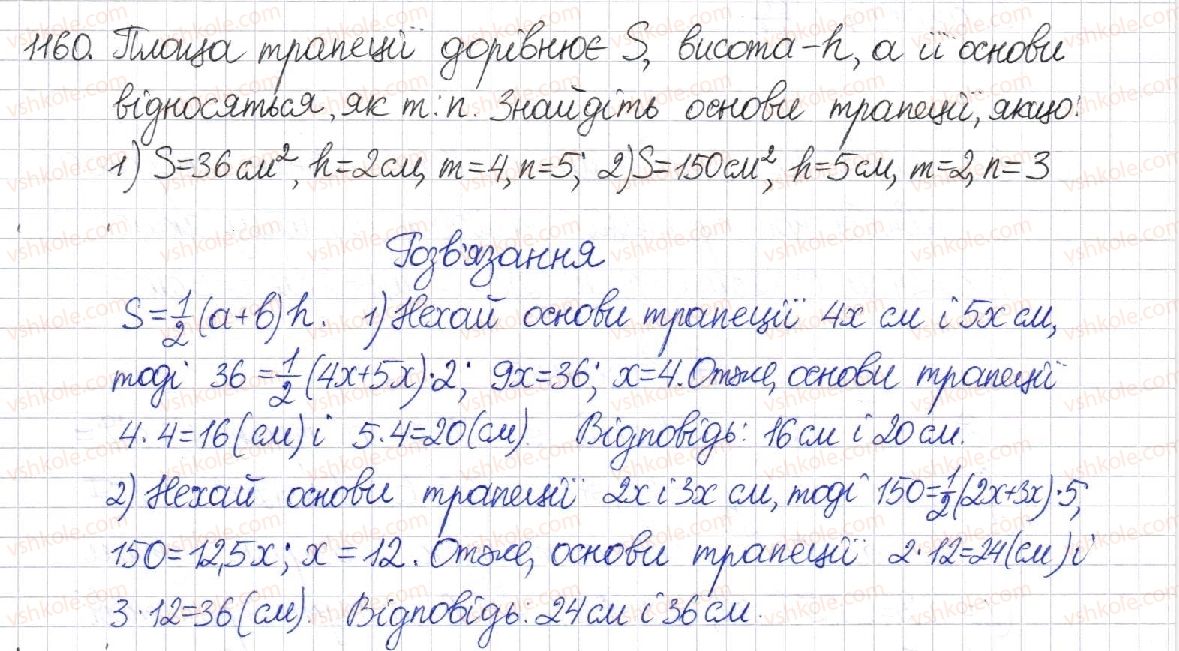 1160. Площа трапеції дорівнює S, висота – h, а її основи
відносяться, як m:n. Знайдіть основи трапеції, якщо:
1) S=36 см², h=2 см, m=4, n=5; 2) S=150 см², h=5 см, m=2, n=3
Розв'язання
S=1/2(a+b)h. 1) Нехай основи трапеції 4x см і 5x см,
тоді 36=1/2(4x+5x)·2; 9x=36; x=4. Отже, основи трапеції
4·4=16(см) і 5·4=20(см) Відповідь: 16 см і 20 см.
2) Нехай основи трапеції 2x і 3x см, тоді 150=1/2(2x+3x)·5;
150=12,5x; x=12. Отже, основи трапеції 2·12=24(см) і
3·12=36(см). Відповідь: 24 см і 36 см.